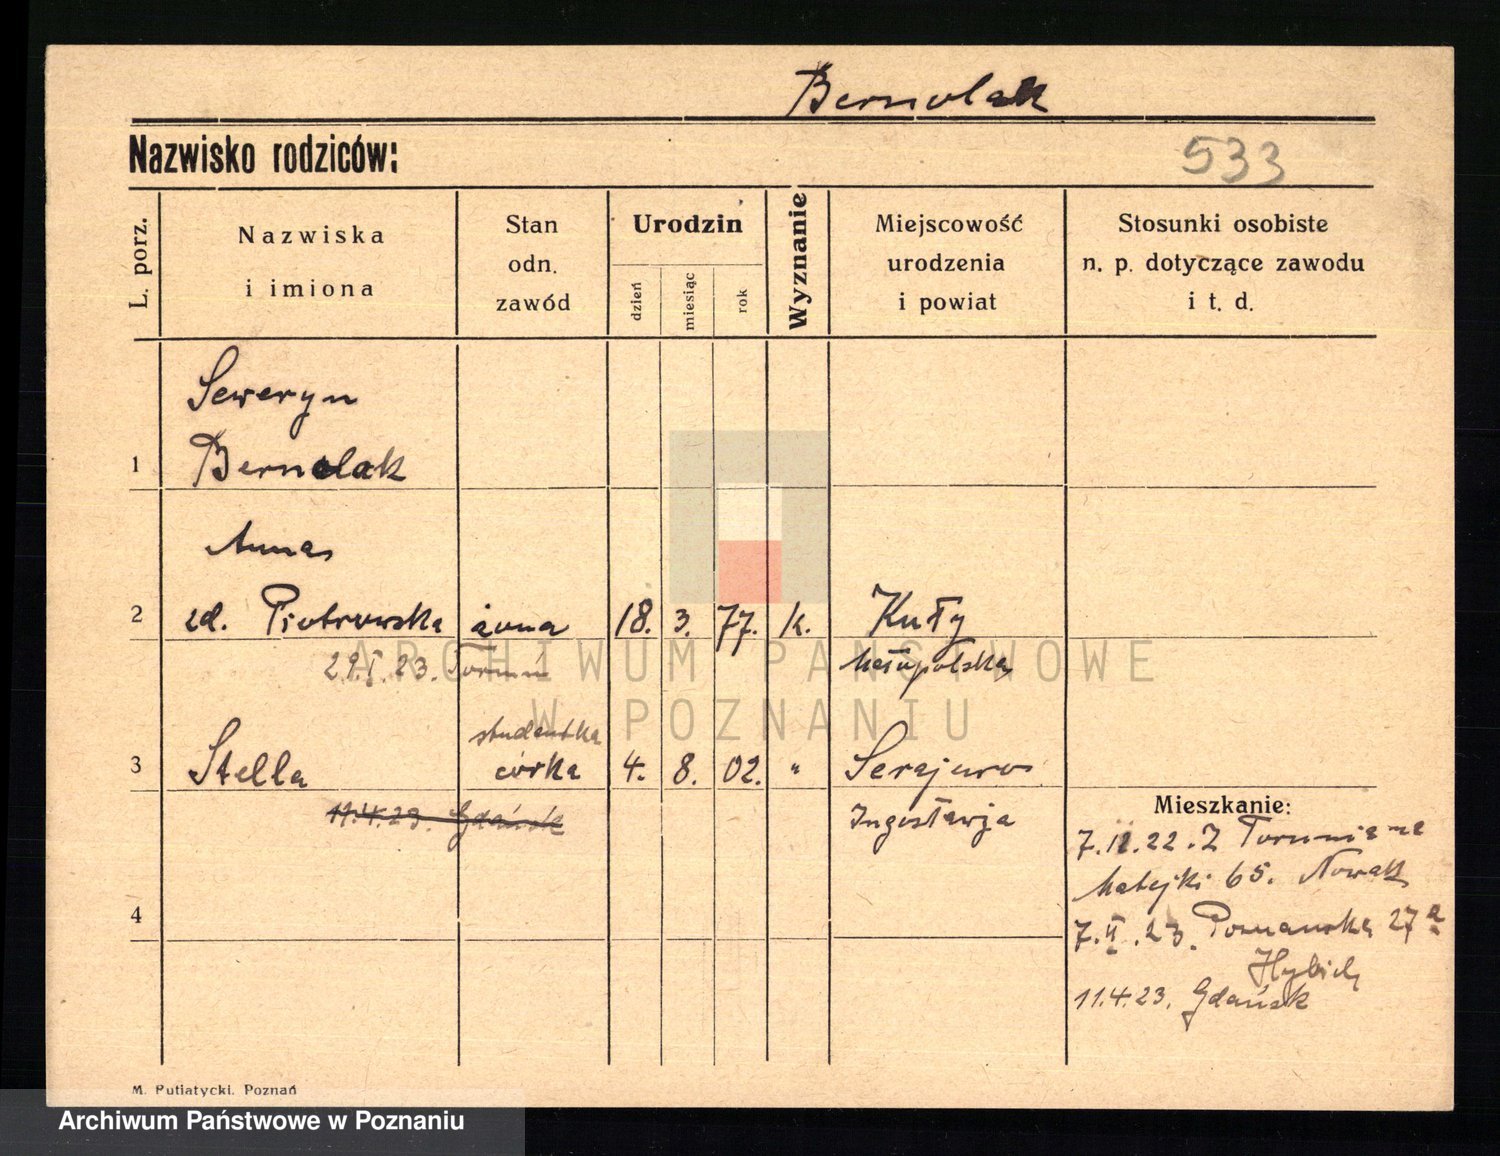 Bernolak
Nazwisko rodziców:
533
L. porz.
Nazwiska
i imiona
Stan
odn.
zawód
Urodzin
dzień
miesiąc
rok
Wyznanie
Miejscowość
urodzenia
i powiat
Stosunki osobiste
n. p. dotyczące zawodu
i t. d.
Seweryn
1 Bernolak
Anna
2 zd. Piotrowska żona 18. 3. 77. k. Kuty
29.I.23. Toruń Małopolska
studentka
3 Stella córka 4. 8. 02. " Serajewo
11.4.23. Gdańsk Jugosławja
Mieszkanie:
7.11.22. Z Torunia na
Matejki 65. Nowak
4
7.II.23. Poznańska 27a
11.4.23. Gdańsk
M. Putiatycki. Poznań
ARCHIWUM PAŃSTWOWE
W POZNANIU
Archiwum Państwowe w Poznaniu